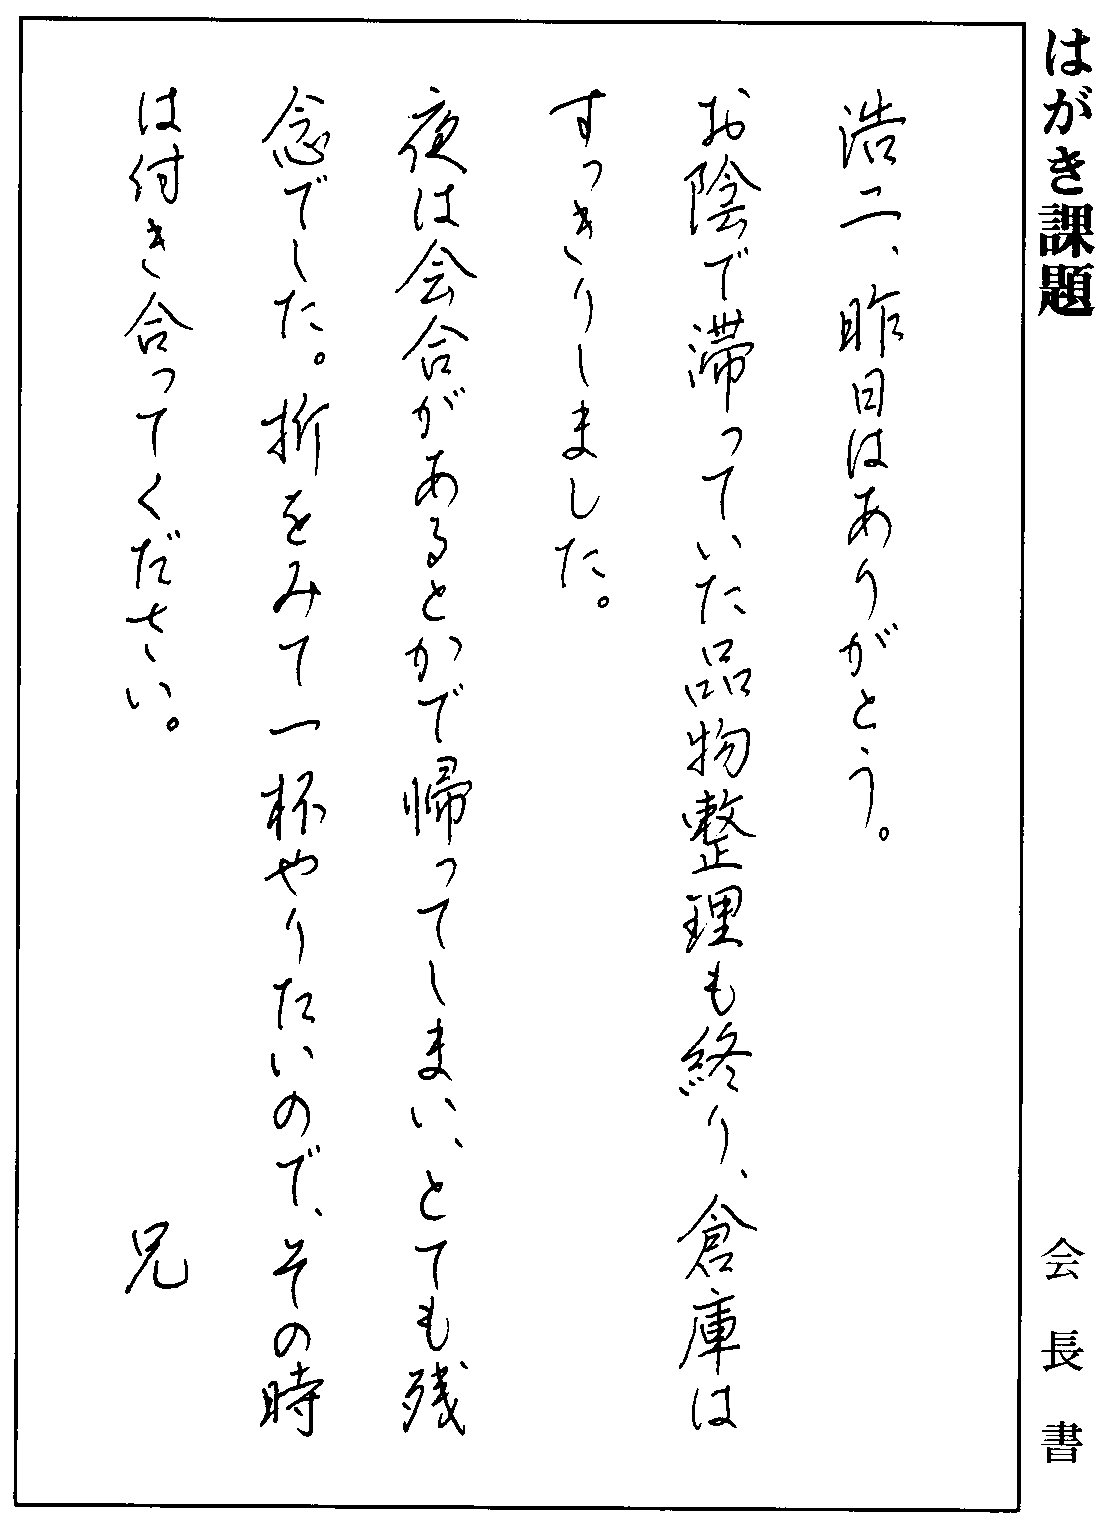 はがき課題
会長書
浩二、昨日はありがとう。
お陰で滞っていた品物整理も終り、倉庫は
すっきりしました。
夜は会合があるとかで帰ってしまい、とても残
念でした。折をみて一杯やりたいので、その時
は付き合ってください。
兄